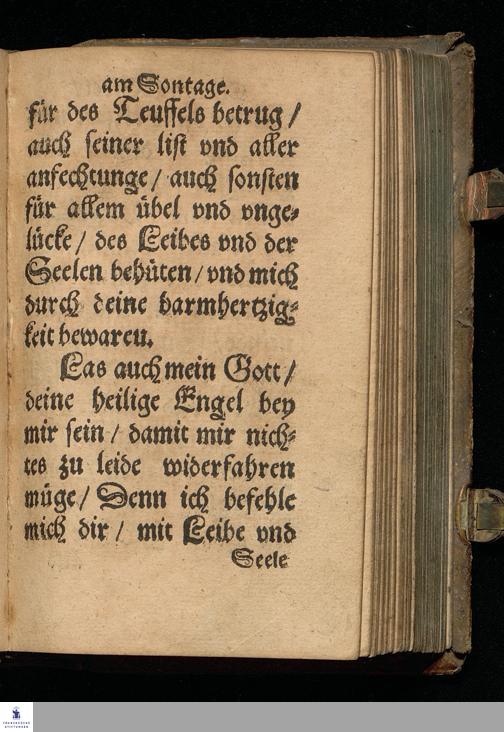 am Sontage.
für des Teuffels betrug /
auch seiner list vnd aller
anfechtunge / auch sonsten
für allem übel vnd vnge⸗
lücke / des Leibes vnd der
Seelen behüten / vnd mich
durch deine barmhertzig⸗
keit bewareu.
Las auch mein Gott /
deine heilige Engel bey
mir sein / damit mir nich⸗
tes zu leide widerfahren
müge / Denn ich befehle
mich dir / mit Leibe vnd
Seele
FRANCKESCHE
STIFTUNGEN